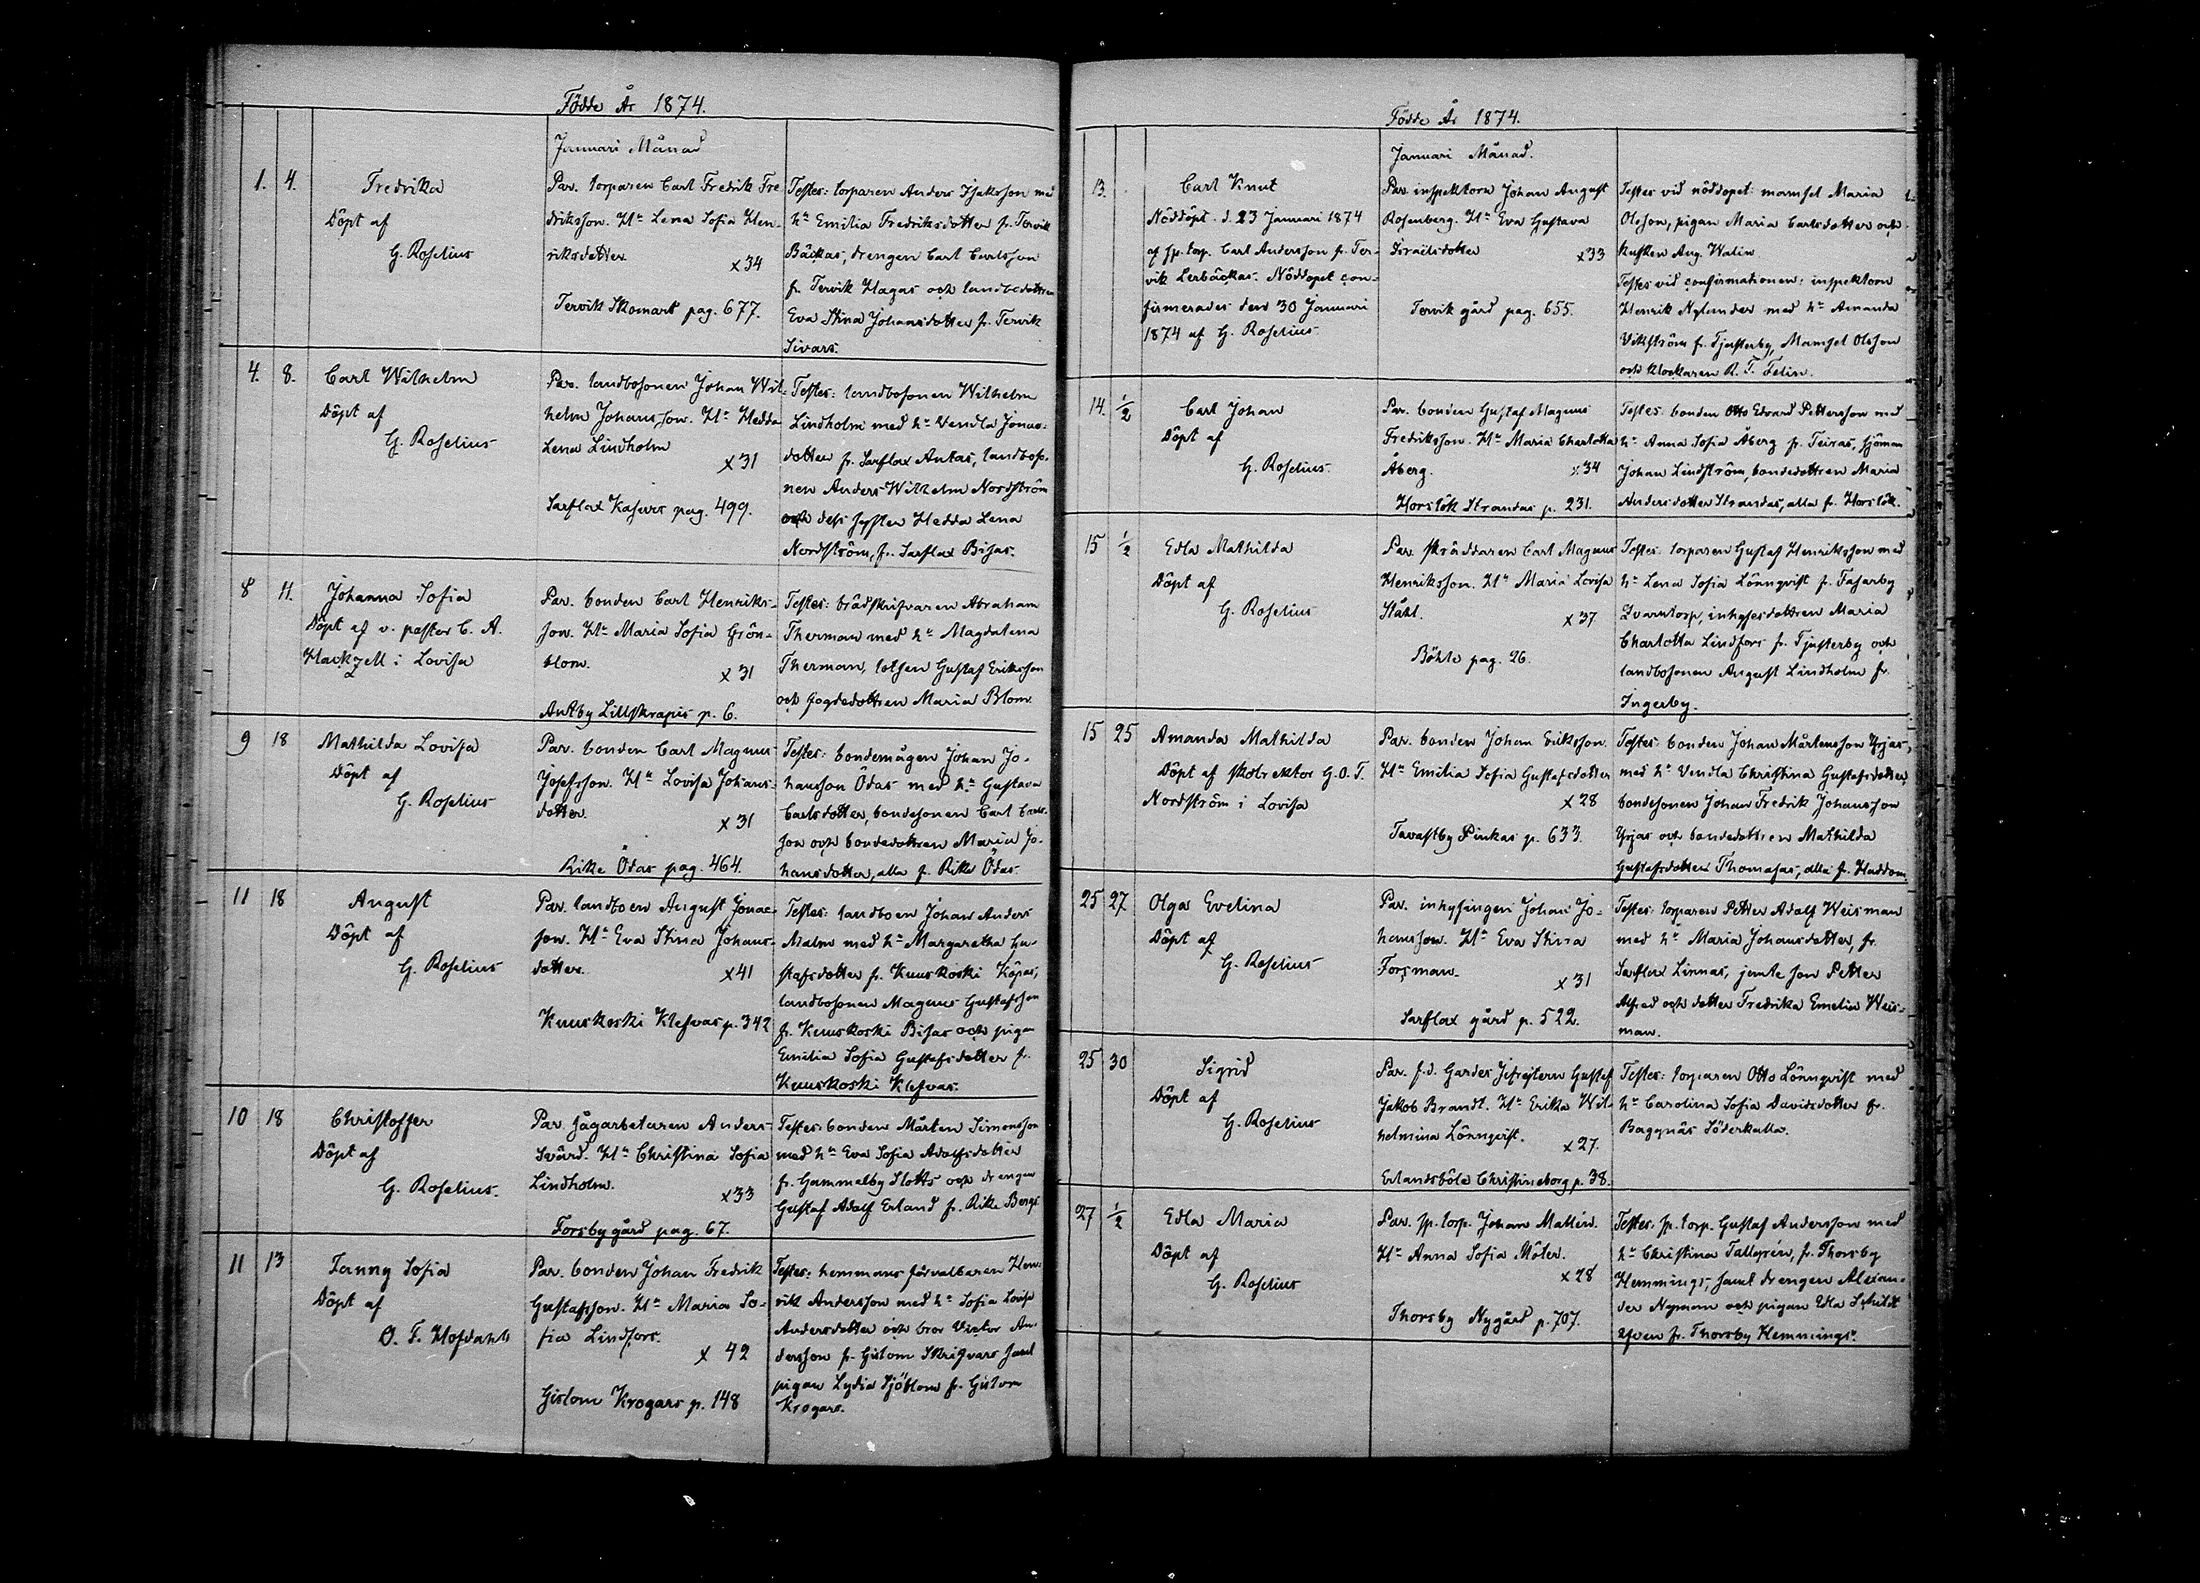 Födde År 1874.
Januari Månad
1. 4. Fredrika
Döpt af
G. Roselius
Par. torparen Carl Fredrik Fre
driksson. H:u Lena Sofia Hen-
riksdotter
x34
Tervik Skomars pag. 677.
Testes: torparen Anders Isaksson med
h:u Emilia Fredriksdotter fr. Tervik
Bäckas, drengen Carl Carlsson
fr. Tervik Hagas och landbodottren
Eva Stina Johansdotter fr. Tervik
Sivars.
4. 8. Carl Wilhelm
Döpt af
G. Roselius
Par. landbosonen Johan Wil-
helm Johansson. H:u Hedda
Lena Lindholm
x31
Sarflax Kasurs pag. 499.
Testes: landbosonen Wilhelm
Lindholm med h:u Vendla Jonas-
dotter fr. Sarflax Antas, landboso-
nen Anders Wilhelm Nordström
och dess syster Hedda Lena
Nordström, fr. Sarflax Bisas.
8 11. Johanna Sofia
Döpt af v. pastor C. A.
Hackzell i Lovisa
Par. bonden Carl Henriks-
son. H:u Maria Sofia Grön-
blom.
x31
Antby Lillskrapis p. 6.
Testes: brädskrifvaren Abraham
Therman med h:u Magdalena
Therman, lotsen Gustaf Eriksson
och fogdedottren Maria Blom.
9 18 Mathilda Lovisa
Döpt af
G. Roselius
Par. bonden Carl Magnus
Josefsson. H:u Lovisa Johans-
dotter.
x31
Rike Ödas pag. 464.
Testes: bondemågen Johan Jo-
hansson Ödas med h:u Gustava
Carlsdotter, bondesonen Carl Carls-
son och bondedottren Maria Jo-
hansdotter, alla f. Rike Ödas.
11 18 August
Döpt af
G. Roselius
Par. landboen August Jonas-
son. H:u Eva Stina Johans-
dotter.
x41
Kuuskoski Klefvas p. 342
Testes: landboen Johan Anders
Malm med h:u Margaretha Gu-
stafsdotter fr. Kuuskoski Köpas,
landbosonen Magnus Gustafsson
fr. Kuuskoski Bisas och pigan
Emilia Sofia Gustafsdotter fr.
Kuuskoski Klefvas.
10 18 Christoffer
Döpt af
G. Roselius.
Par. sågarbetaren Anders
Svärd. H:u Christina Sofia
Lindholm.
x33
Forsby gård pag. 67.
Testes: bonden Mårten Simonsson
med h:u Eva Sofia Adolfsdotter
fr. Gammelby Slotts och drengen
Gustaf Adolf Erland fr. Rike Bergs
11 13 Fanny Sofia
Döpt af
O. F. Hofdahl
Par. bonden Johan Fredrik
Gustafsson. H:u Maria So-
fia Lindfors.
x 42
Gislom Krogars p. 148
Testes: hemmans förvaltaren Hen-
rik Andersson med h:u Sofia Lovisa
Andersdotter och bror Victor An-
dersson fr. Gislom Skrifvars samt
pigan Lydia Sjöblom fr. Gislom
Krogars.
Födde År 1874.
Januari Månad.
13. Carl Knut
Nöddöpt d. 23 Januari 1874
af sp. torp. Carl Andersson fr. Ter-
vik Lerbäckas. Nöddopet con-
firmerades den 30 Januari
1874 af G. Roselius
Par. inspektorn Johan August
Rosenberg. H:u Eva Gustava
Israelsdotter
x33
Tervik gård pag. 655.
Testes vid nöddopet: mamsel Maria
Olsson, pigan Maria Carlsdotter och
kusken Aug. Walin
Testes vid confirmationen: inspektorn
Henrik Nylander med h:u Amanda
Vikström fr. Tjusterby, Mamsel Olsson
och klockaren R. T. Felin.
14. 1/2 Carl Johan
Döpt af
G. Roselius.
Par. bonden Gustaf Magnus
Fredriksson. H:u Maria Charlotta
Åberg.
x34
Horslök Strandas p. 231.
Testes: bonden Otto Edvard Pettersson med
h:u Anna Sofia Åberg fr. Teiras, sjöman
Johan Lindström, bondedottren Maria
Andersdotter Strandas, alla fr. Horslök.
15 1/2 Edla Mathilda
Döpt af
G. Roselius
Par. skräddaren Carl Magnus
Henriksson. H:u Maria Lovisa
Ståhl.
x37
Böhle pag. 26.
Testes: torparen Gustaf Henriksson med
h:u Lena Sofia Lönnqvist fr. Fasarby
Qvarntorp, inhysesdottren Maria
Charlotta Lindfors fr. Tjusterby och
landbosonen August Lindholm fr.
Ingerby.
15 25 Amanda Mathilda
Döpt af skolrektor G. O. T.
Nordström i Lovisa
Par. bonden Johan Eriksson.
H:u Emilia Sofia Gustafsdotter
x28
Tavastby Pinkas p. 633.
Testes: bonden Johan Mårtensson Yrjas,
med h:u Vendla Christina Gustafsdotter,
bondesonen Johan Fredrik Johansson
Yrjas och bondedottren Mathilda
Gustafsdotter Thomasas, alla f. Haddom.
25 27 Olga Evelina
Döpt af
G. Roselius
Par. inhysingen Johan Jo-
hansson. H:u Eva Stina
Forsman.
x31
Sarflax gård p. 522.
Testes: torparen Petter Adolf Weisman
med h:u Maria Johansdotter, fr.
Sarflax Linnas, jemte son Petter
Alfred och dotter Fredrika Emelia Weis-
man.
25 30 Sigrid
Döpt af
G. Roselius
Par. f.d. Gardes Jefrejtern Gustaf
Jakob Brandt. H:u Erika Wil-
helmina Lönnqvist.
x27.
Erlandsböle Christineborg p. 38.
Testes: torparen Otto Lönnqvist med
h:u Carolina Sofia Davidsdotter fr.
Baggnäs Söderkulla.
27 1/2 Edla Maria
Döpt af
G. Roselius
Par. sp. torp. Johan Mallén.
H:u Anna Sofia Möler.
x28
Thorsby Nygård p. 707.
Testes: sp. torp. Gustaf Andersson med
h:u Christina Tallgrén, fr. Thorsby
Hemmings, samt drengen Alexan-
der Nyman och pigan Edla Schildt
äfven fr. Thorsby Hemmings.